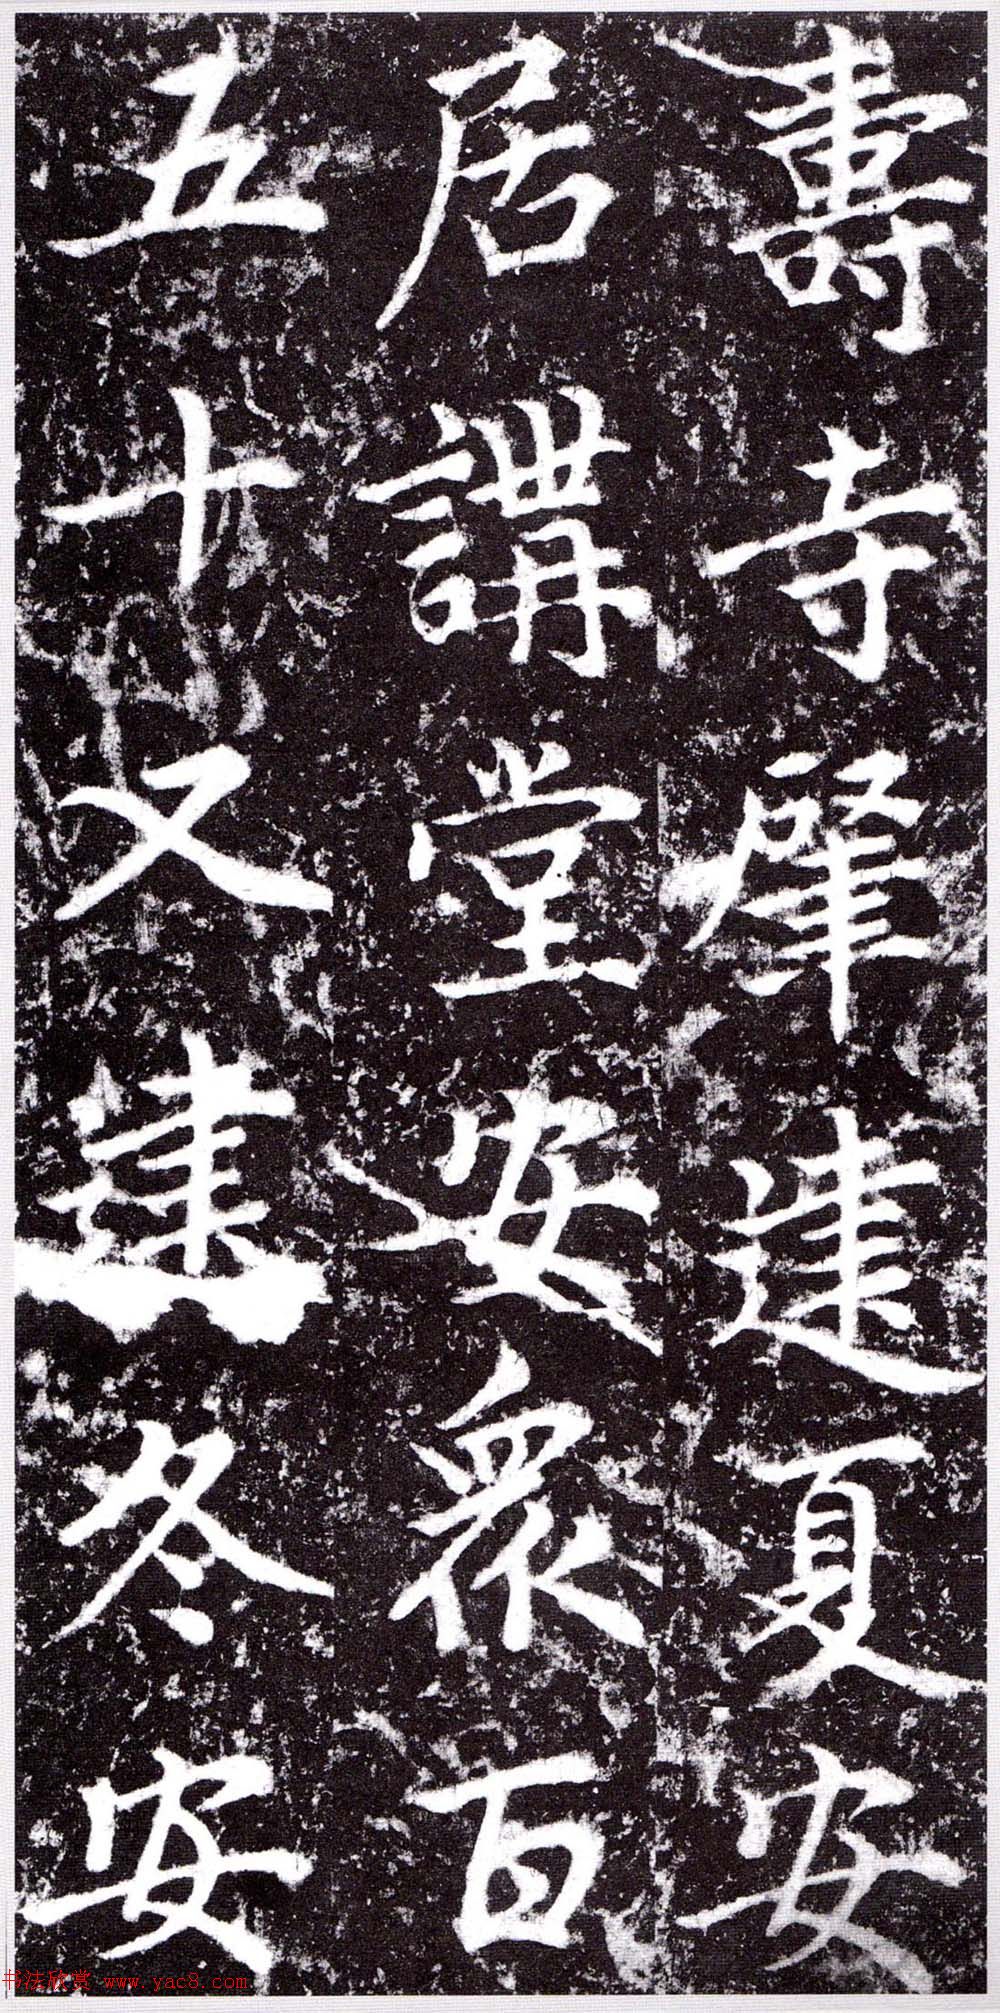 壽寺肇建夏安
居講堂安衆百
五十又建冬安
书法欣赏 www.yac8.com